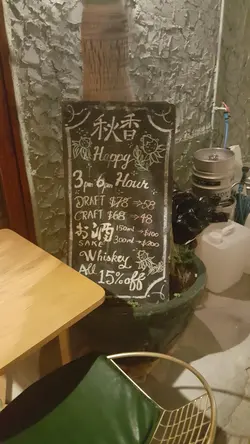 秋香
Happy
3pm 6pm Hour
DRAFT $78 → 58
CRAFT $68 → 48
お酒 150ml → $100
SAKE 300ml → $200
Whiskey
All 15% off